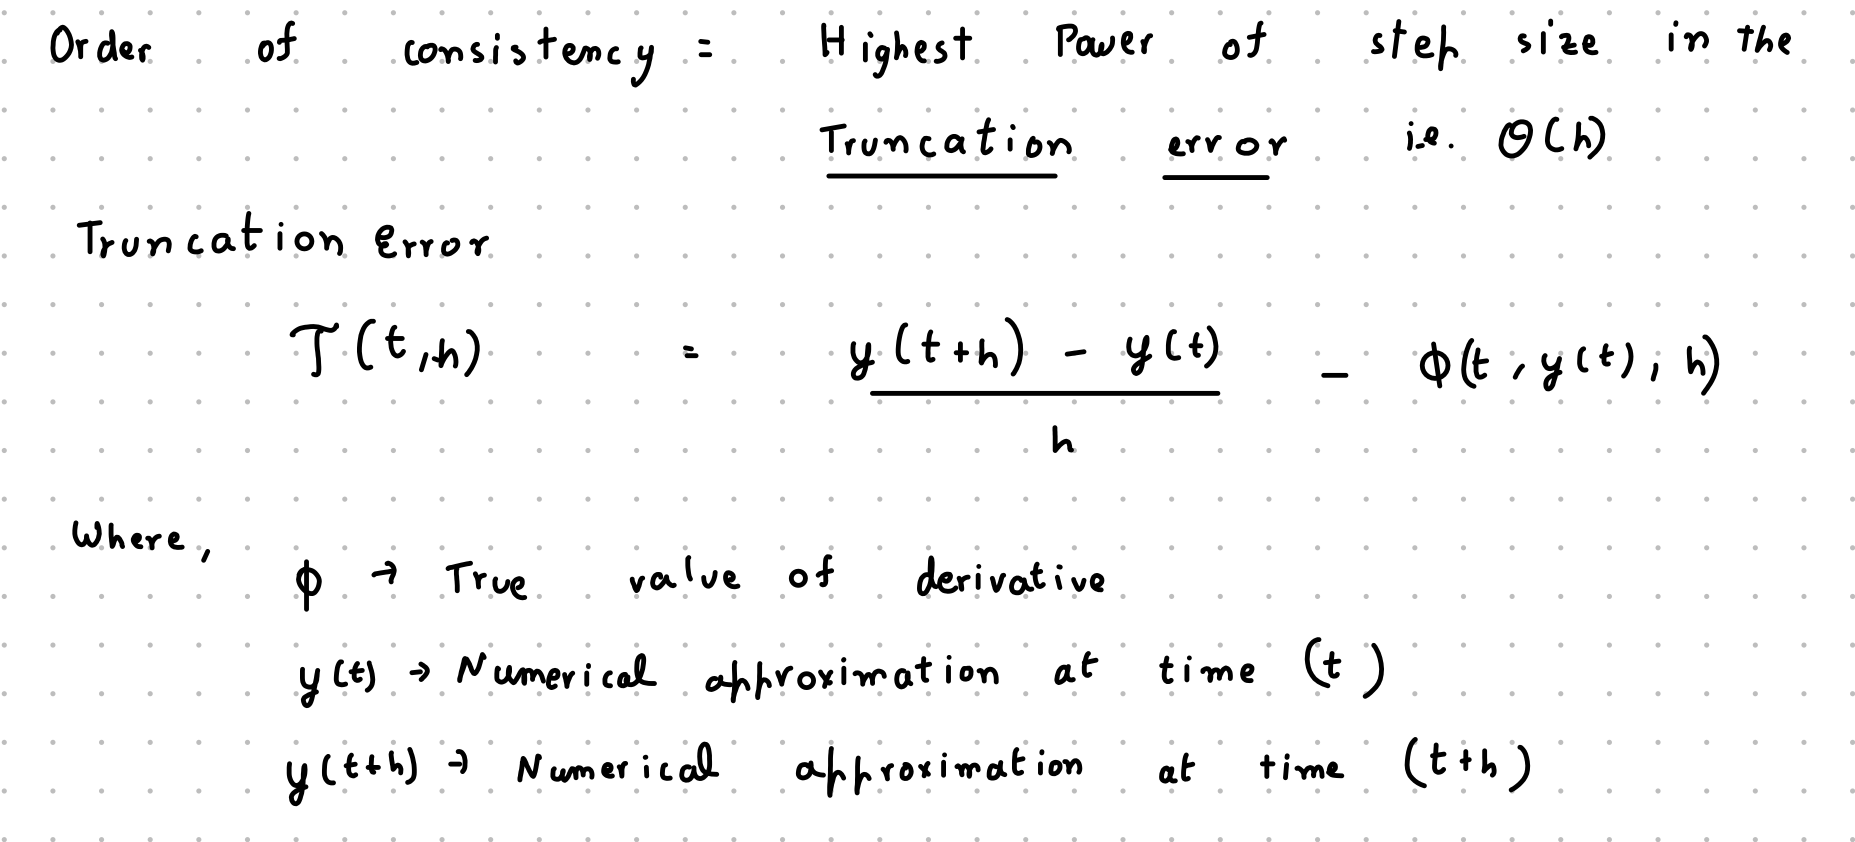 Order of consistency = Highest Power of step size in the
Truncation error i.e. O(h)
Truncation Error
T(t,h) = y(t+h) - y(t) - ϕ(t, y(t), h)
h
Where,
ϕ → True value of derivative
y(t) → Numerical approximation at time (t)
y(t+h) → Numerical approximation at time (t+h)